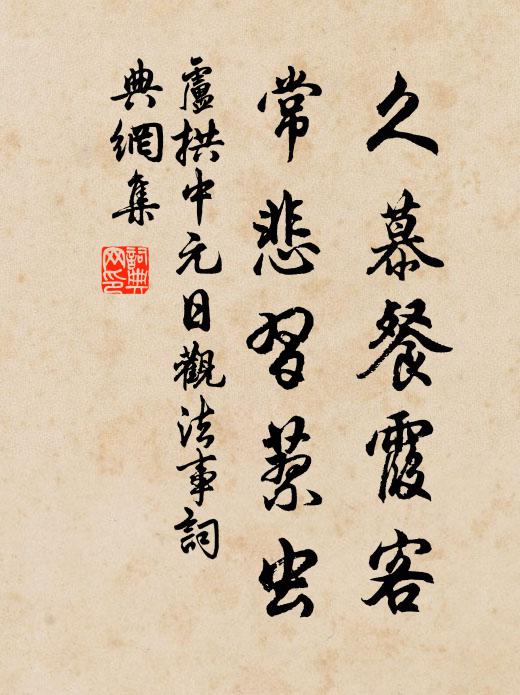 久慕餐霞客
常悲習蓼虫
盧拱中元日觀法事詞
典網集
詞典
网印